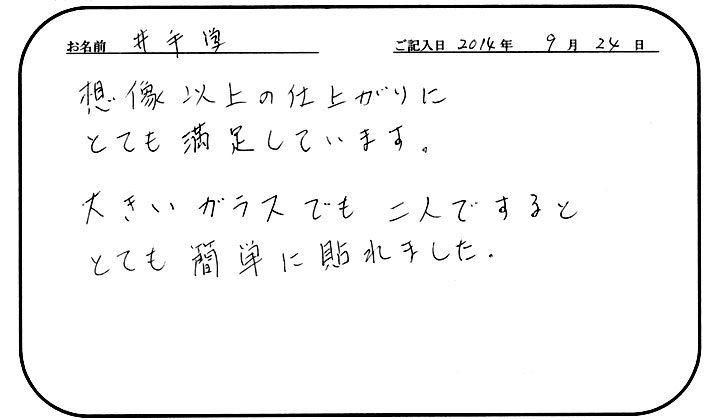 お名前 井手 学 ご記入日 2014年 9月 24日
想像以上の仕上がりに
とても満足しています。
大きいガラスでも二人ですると
とても簡単に貼れました.